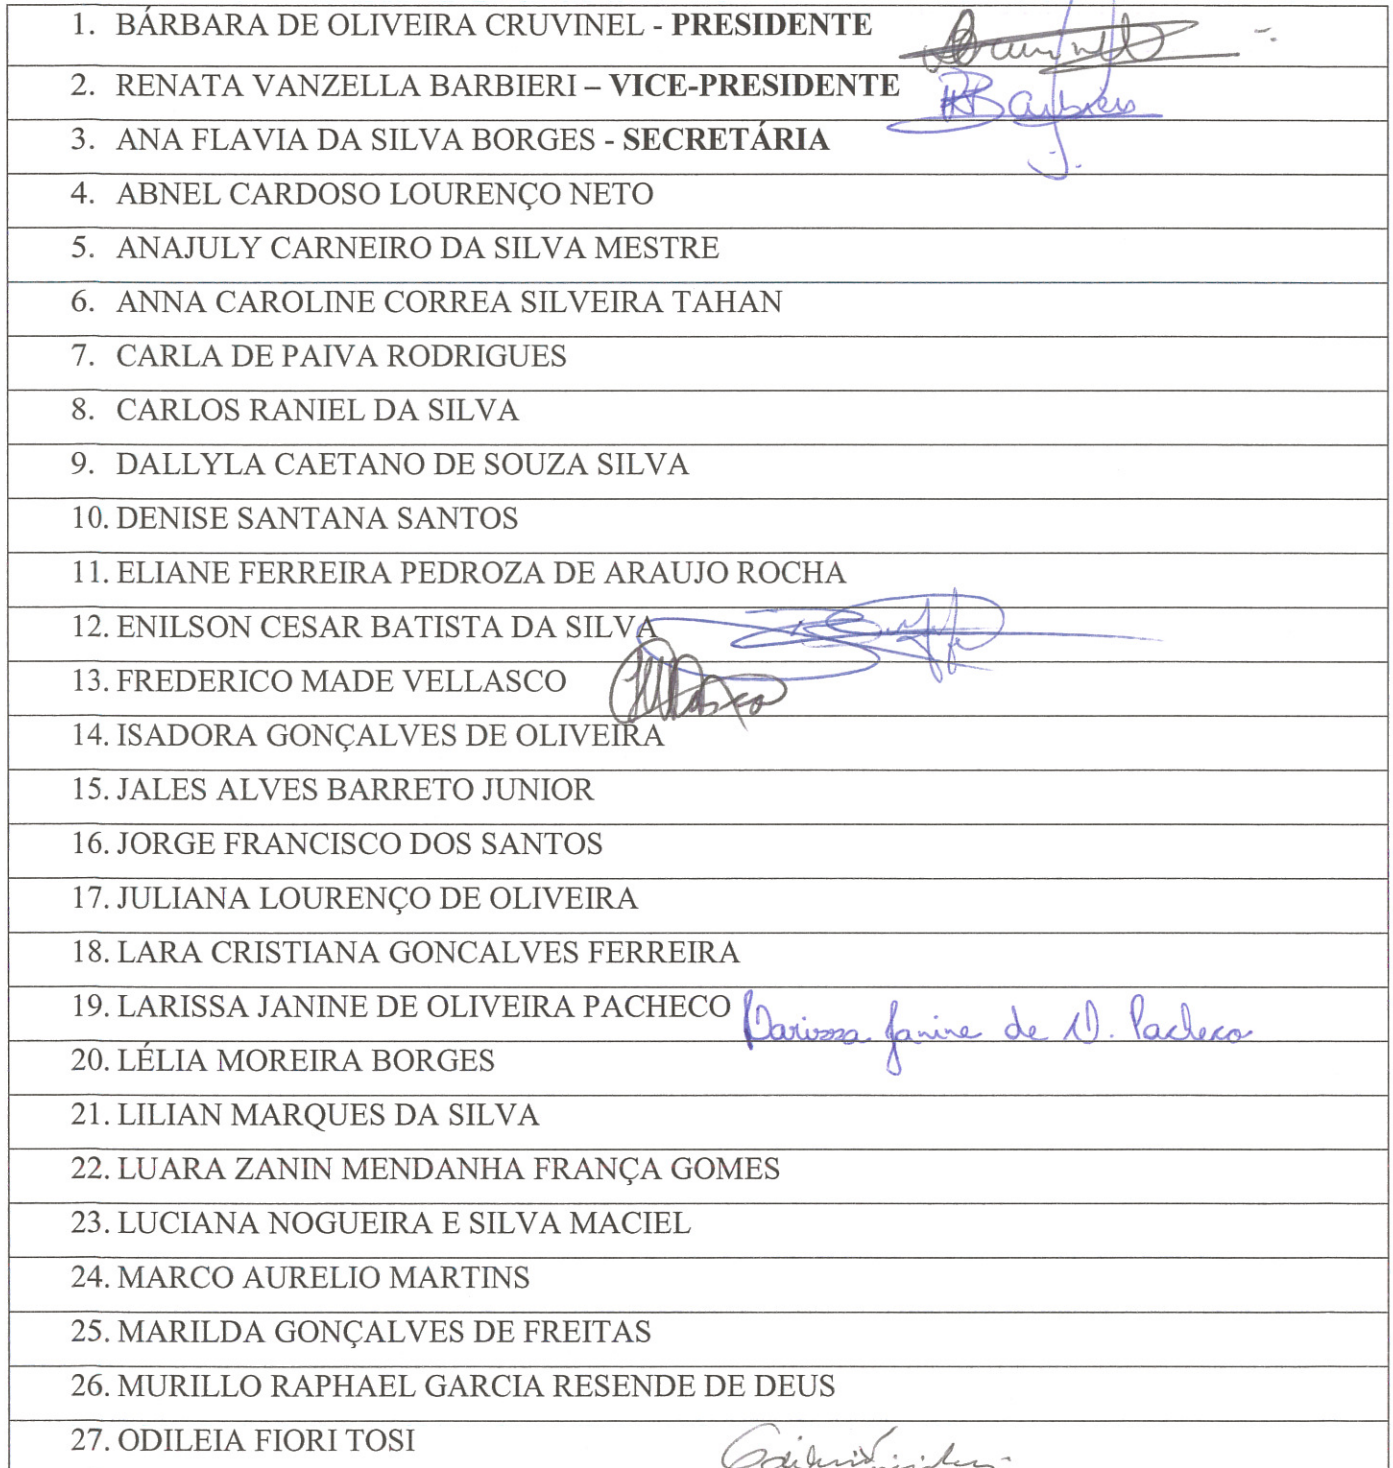 1. BÁRBARA DE OLIVEIRA CRUVINEL - PRESIDENTE
2. RENATA VANZELLA BARBIERI – VICE-PRESIDENTE RBarbieri
3. ANA FLAVIA DA SILVA BORGES - SECRETÁRIA
4. ABNEL CARDOSO LOURENÇO NETO
5. ANAJULY CARNEIRO DA SILVA MESTRE
6. ANNA CAROLINE CORREA SILVEIRA TAHAN
7. CARLA DE PAIVA RODRIGUES
8. CARLOS RANIEL DA SILVA
9. DALLYLA CAETANO DE SOUZA SILVA
10. DENISE SANTANA SANTOS
11. ELIANE FERREIRA PEDROZA DE ARAUJO ROCHA
12. ENILSON CESAR BATISTA DA SILVA
13. FREDERICO MADE VELLASCO
14. ISADORA GONÇALVES DE OLIVEIRA
15. JALES ALVES BARRETO JUNIOR
16. JORGE FRANCISCO DOS SANTOS
17. JULIANA LOURENÇO DE OLIVEIRA
18. LARA CRISTIANA GONCALVES FERREIRA
19. LARISSA JANINE DE OLIVEIRA PACHECO Larissa Janine de O. Pacheco
20. LÉLIA MOREIRA BORGES
21. LILIAN MARQUES DA SILVA
22. LUARA ZANIN MENDANHA FRANÇA GOMES
23. LUCIANA NOGUEIRA E SILVA MACIEL
24. MARCO AURELIO MARTINS
25. MARILDA GONÇALVES DE FREITAS
26. MURILLO RAPHAEL GARCIA RESENDE DE DEUS
27. ODILEIA FIORI TOSI